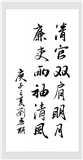 清官双肩明月
廉吏两袖清风
庚子之夏